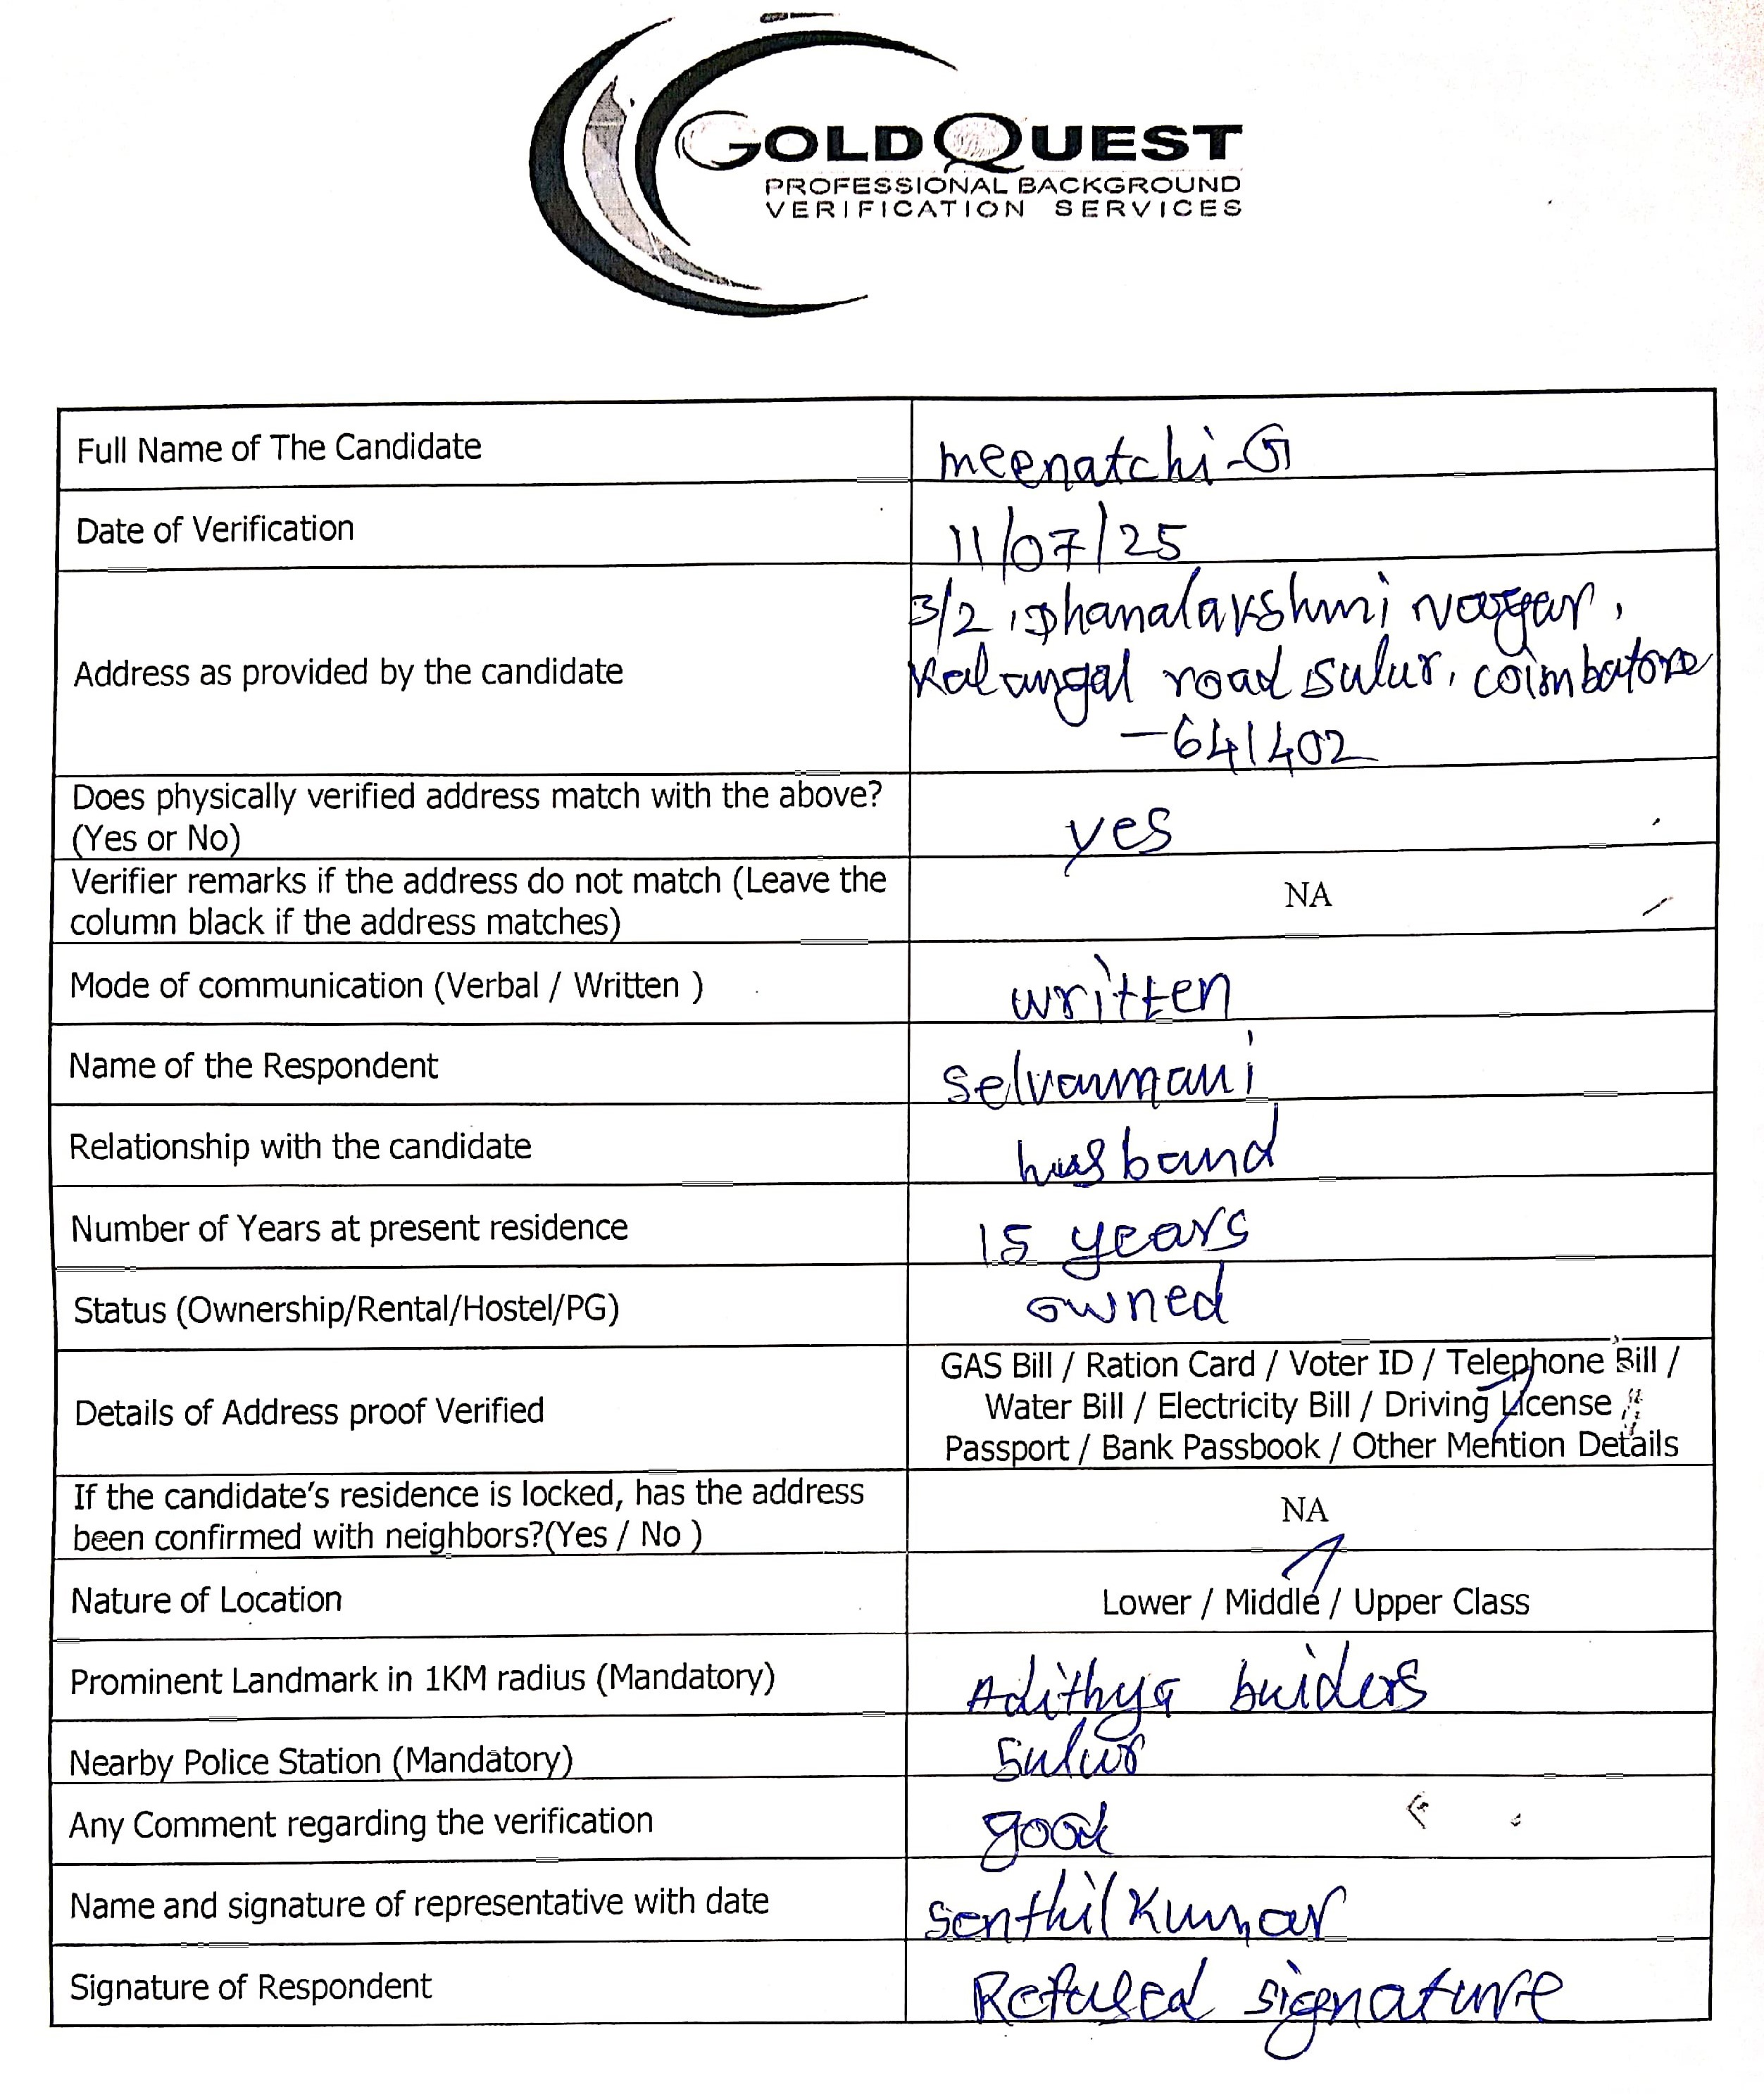 GOLDQUEST
PROFESSIONAL BACKGROUND
VERIFICATION SERVICES
Full Name of The Candidate
meenatchi-G
Date of Verification
11/07/25
Address as provided by the candidate
3/2, Dhanalakshmi nagar,
Kalangal road sulur, coimbatore
-641402
Does physically verified address match with the above?
(Yes or No)
yes
Verifier remarks if the address do not match (Leave the
column black if the address matches)
NA
Mode of communication (Verbal / Written )
written
Name of the Respondent
selvamani
Relationship with the candidate
husband
Number of Years at present residence
15 years
Status (Ownership/Rental/Hostel/PG)
owned
Details of Address proof Verified
GAS Bill / Ration Card / Voter ID / Telephone Bill /
Water Bill / Electricity Bill / Driving License /
Passport / Bank Passbook / Other Mention Details
If the candidate's residence is locked, has the address
been confirmed with neighbors?(Yes / No )
NA
Nature of Location
Lower / Middle / Upper Class
Prominent Landmark in 1KM radius (Mandatory)
Adithya buiders
Nearby Police Station (Mandatory)
Sulur
Any Comment regarding the verification
good
Name and signature of representative with date
Senthil Kumar
Signature of Respondent
Refused signature